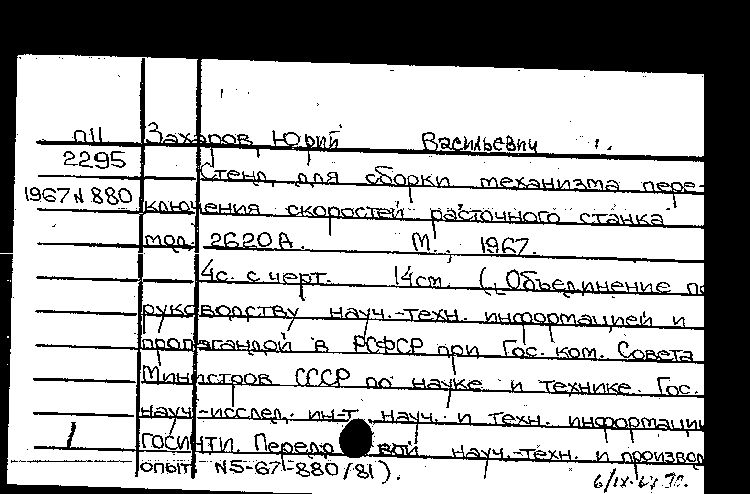 П11 Захаров, Юрий Васильевич
2295 Стенд для сборки механизма пере-
1967 N 880 ключения скоростей расточного станка
мод. 2620А. М., 1967.
4с. с черт. 14см. (Объединение по
руководству науч.-техн. информацией и
пропагандой в РСФСР при Гос. ком. Совета
Министров СССР по науке и технике. Гос.
науч.-исслед. ин-т науч. и техн. информации
1 ГОСИНТИ. Передовой науч.-техн. и производ
опыт. N5-67-880/81).